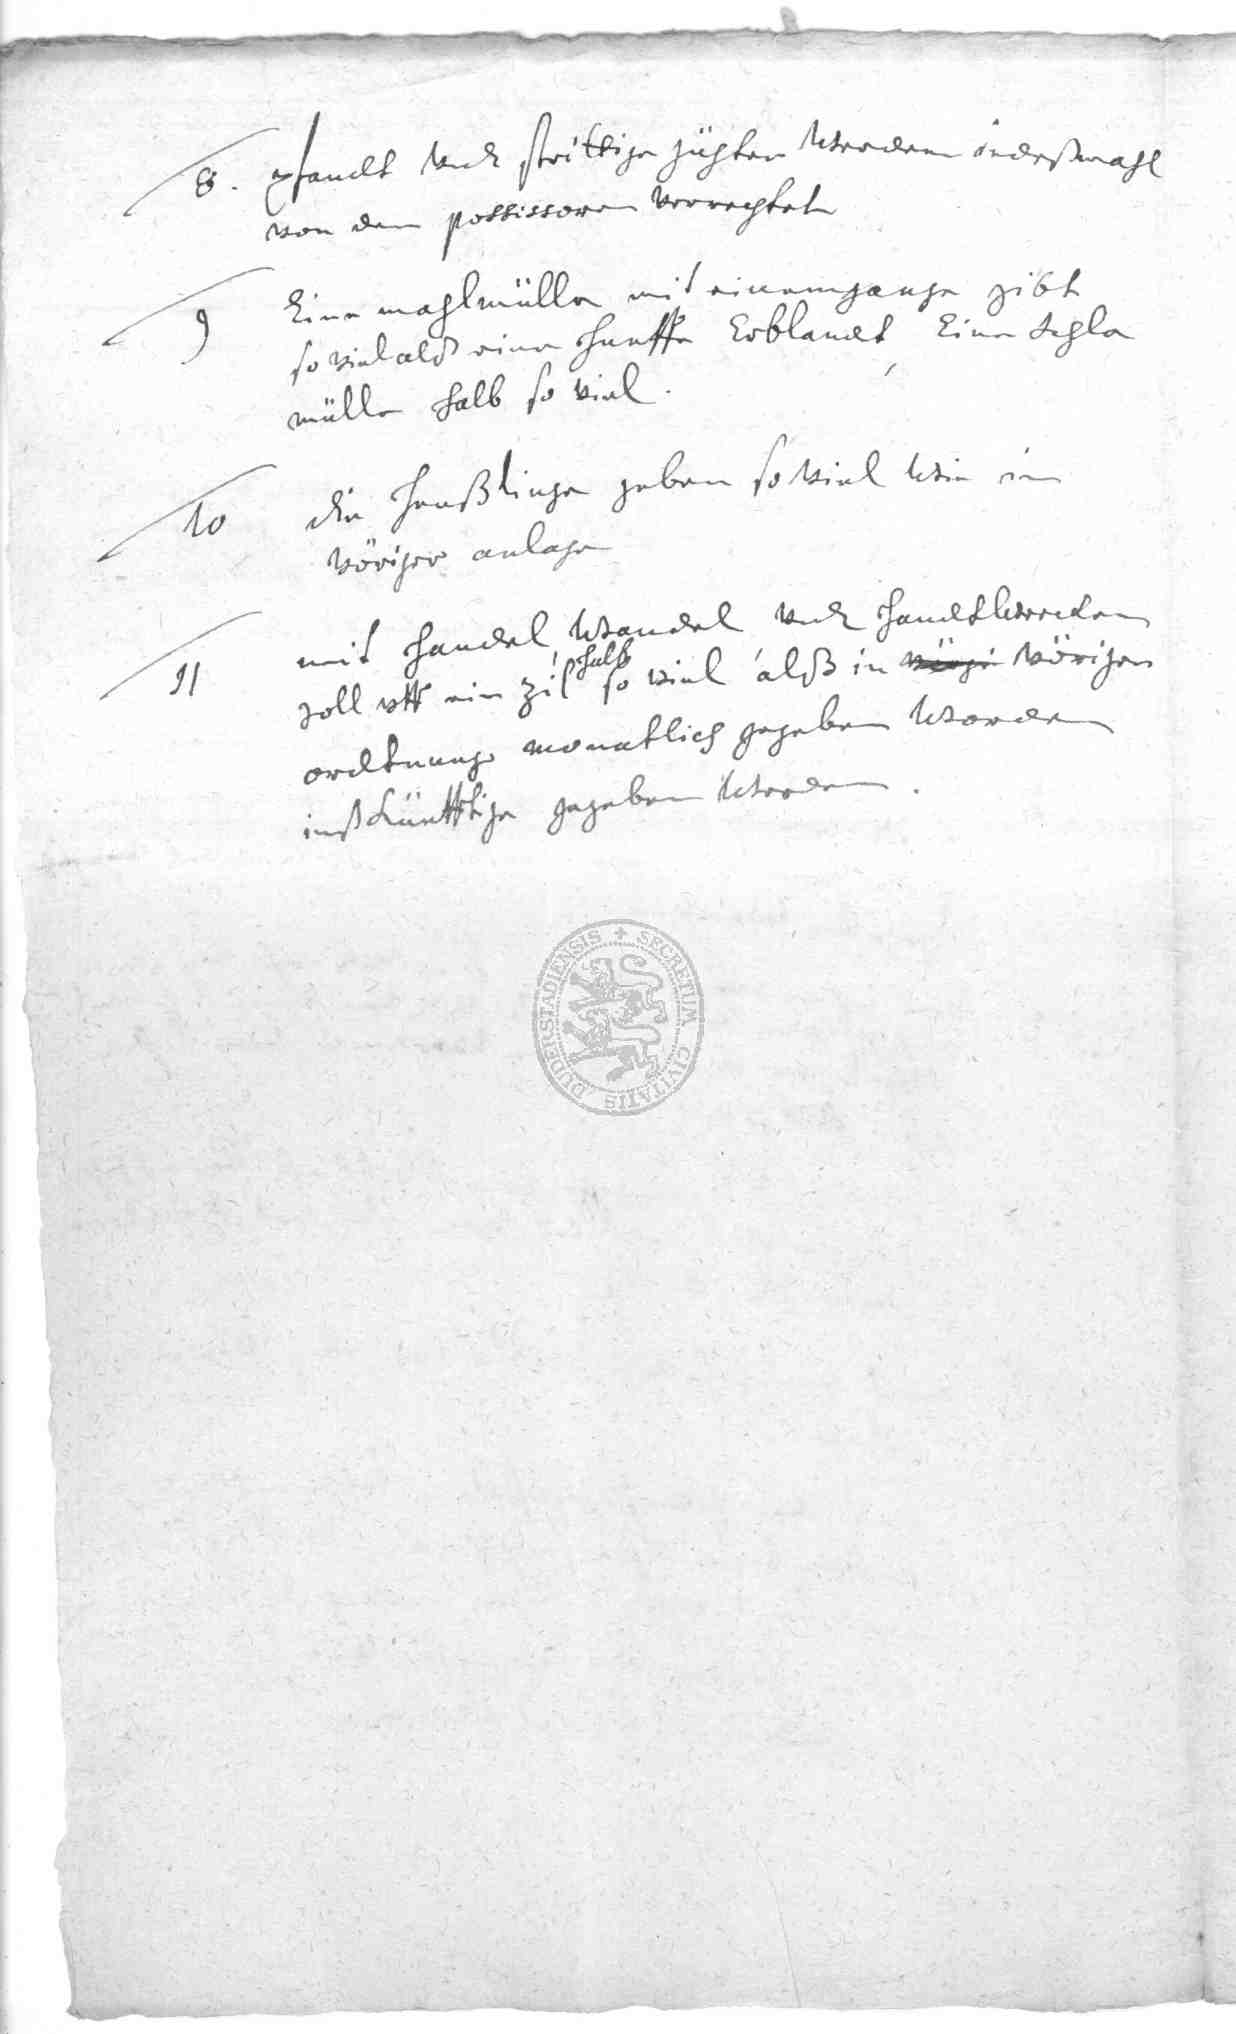 8. pfandt undt strittige gühter werden iedeßmahl
von dem possissoren verrechtet
9 Eine mahlmülle mit einem gange gibt
so viel alß eine hueffe Erblandt, Eine schla
mülle halb so viel.
10 die heußlinge geben so viel wie in
vöriger anlage
11 mit handel, wandel undt handtwercken
soll uff ein zil halb so viel alß in vörigen
ordtnunge monatlich gegeben worden
inß künfftige gegeben werden.
SECRETUM CIVITATIS DUDERSTADIENSIS